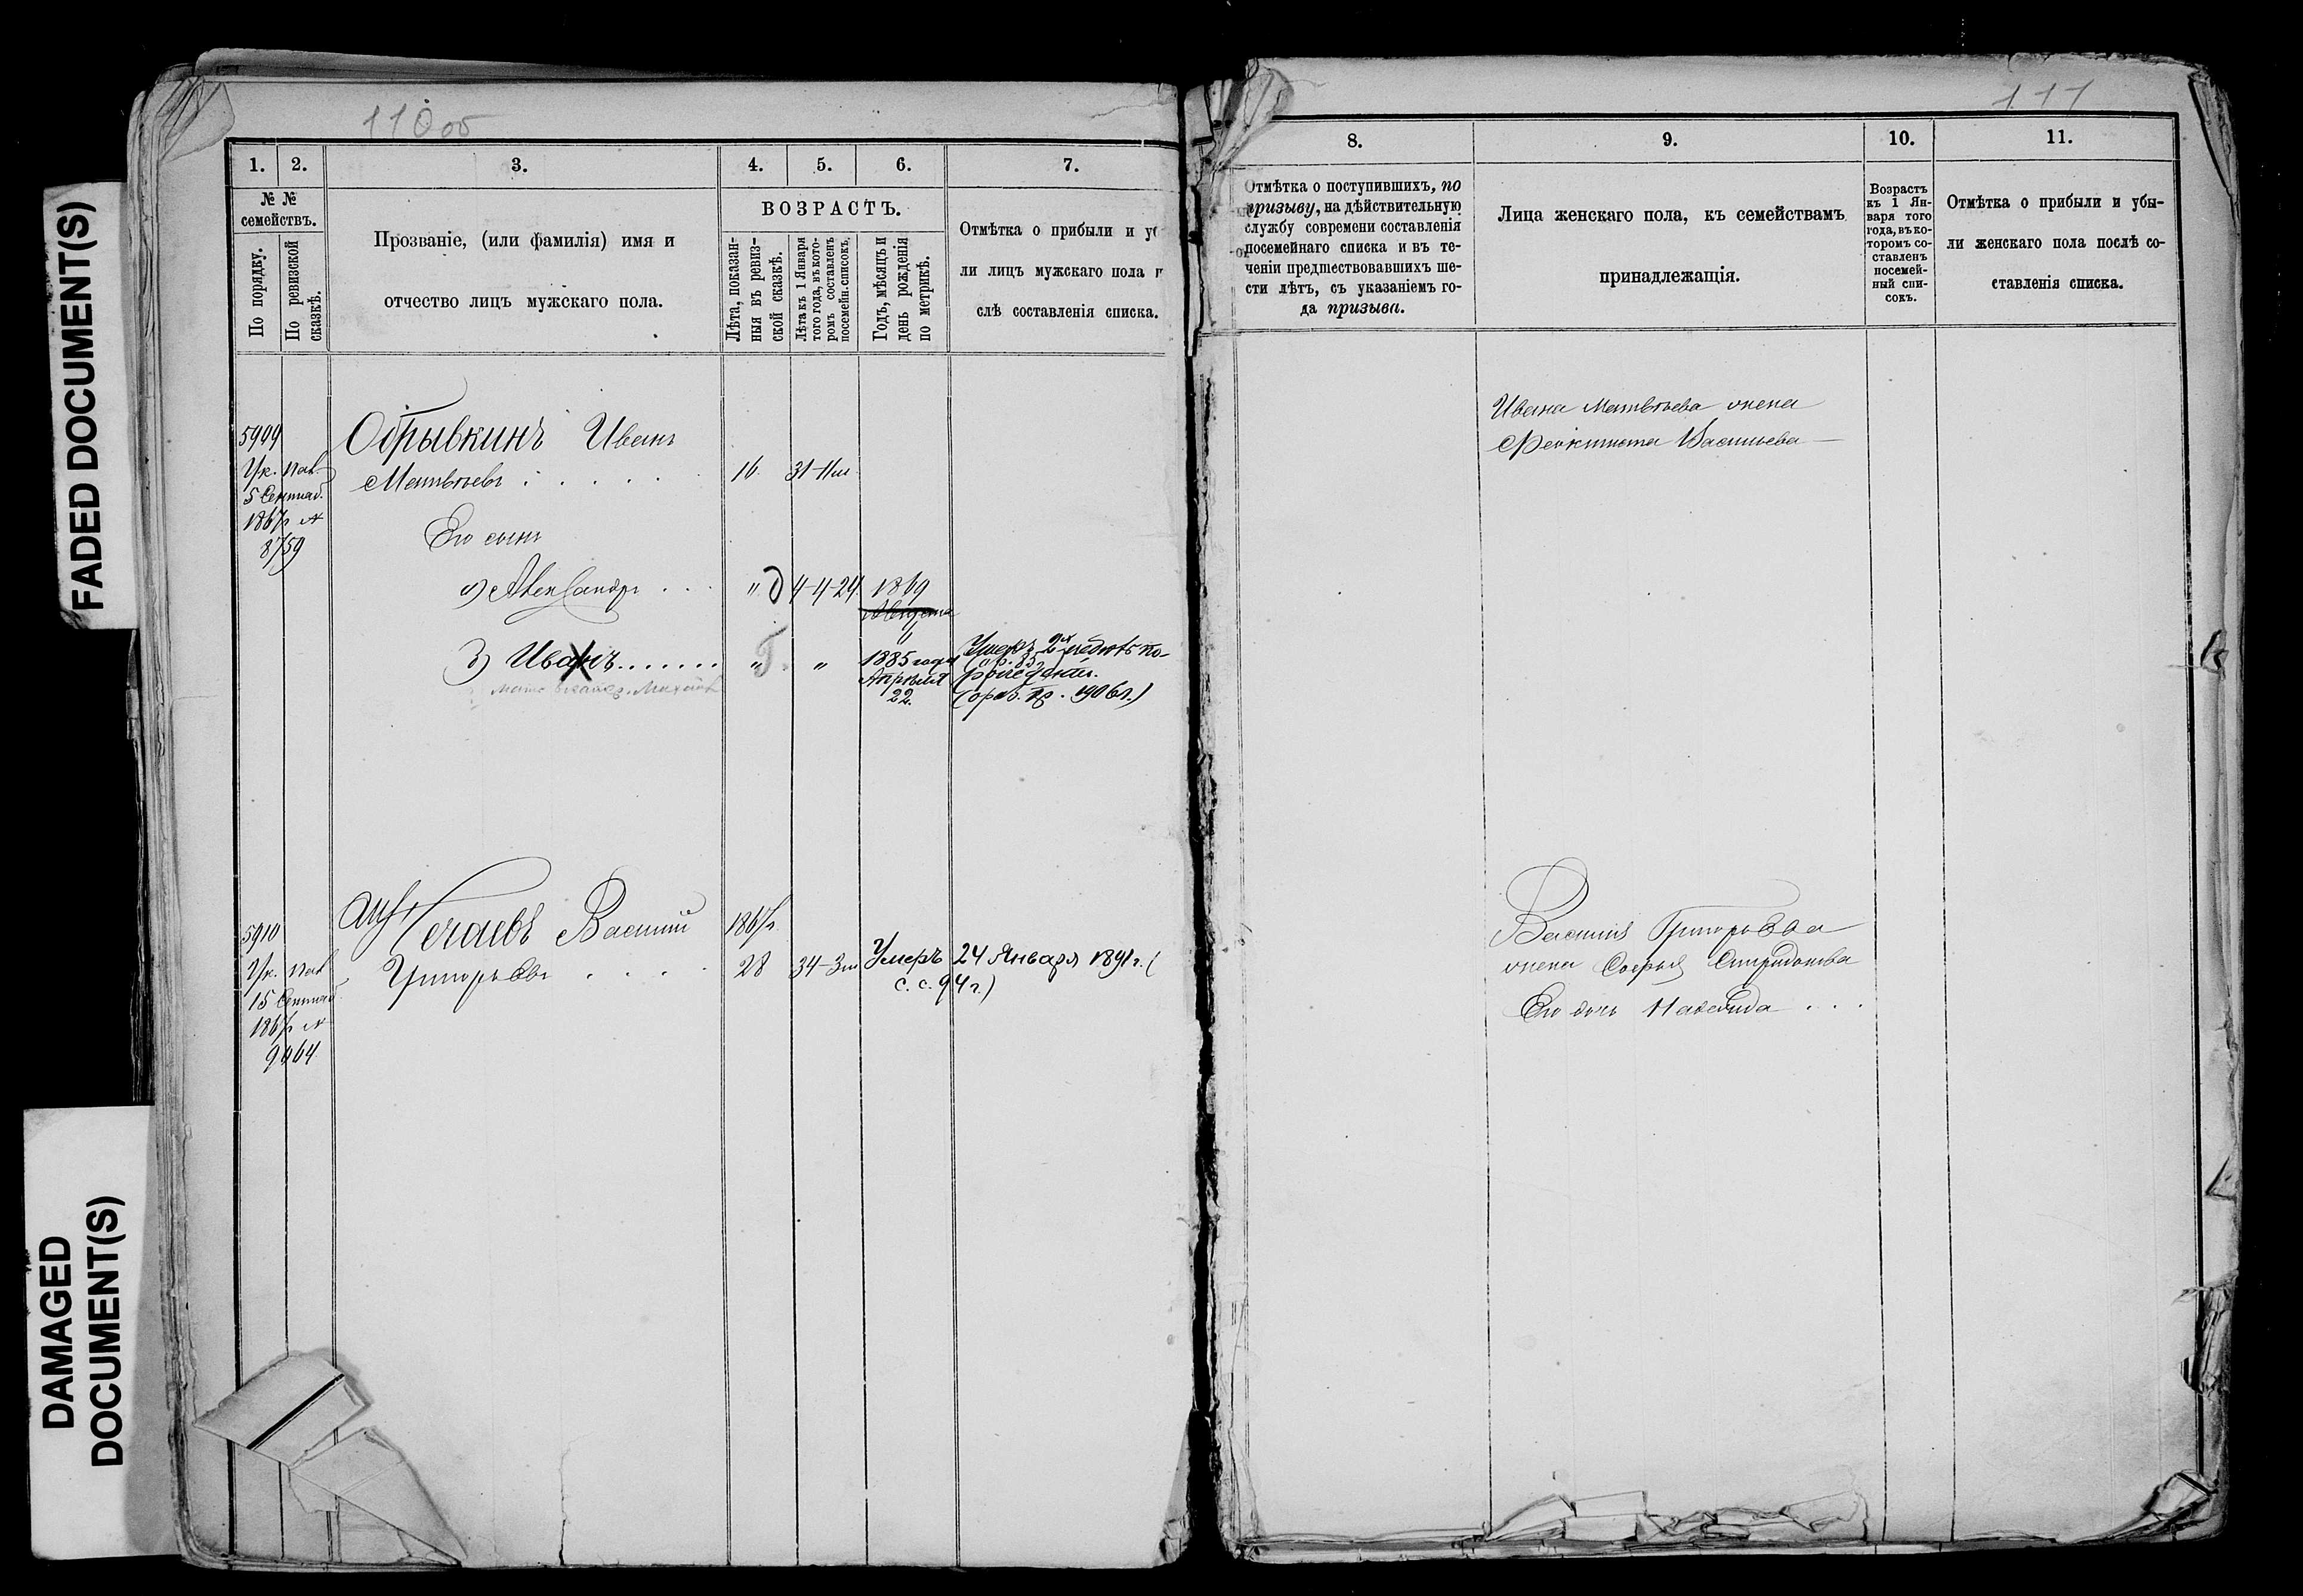 FADED DOCUMENT(S)
DAMAGED
DOCUMENT(S)
110об
1. 2. 3. 4. 5. 6. 7.
№ №
семействъ.
По порядку.
По ревизской
сказкѣ.
Прозваніе, (или фамилія) имя и
отчество лицъ мужскаго пола.
ВОЗРАСТЪ.
Лѣта, показан-
ныя въ ревиз-
ской сказкѣ.
Лѣта къ 1 Января
того года, въ кото-
ромъ составленъ
посемейн. списокъ.
Годъ, мѣсяцъ и
день рожденія
по метрикѣ.
Отмѣтка о прибыли и у
ли лицъ мужскаго пола п
слѣ составленія списка.
5909
Ук. Пал.
5 Сентяб.
1867г №
8759
Обрывкинъ Иванъ
Матвѣевъ 16. 31-11м
Его сынъ
Александръ 4-4-24 1869
Августа
Иванъ „ „ 1885 года
Апрѣля
22.
Умеръ
5910
Ук. Пал
15 Сентяб.
1867г №
9464
Василій 1867г
Григорьевъ 28 34-3м Умеръ 24 Января 1891г. (
с. с. 94 г.)
111
8. 9. 10. 11.
Отмѣтка о поступившихъ, по
призыву, на дѣйствительную
службу современи составленія
посемейнаго списка и въ те-
ченіи предшествовавшихъ ше-
сти лѣтъ, съ указаніемъ го-
да призыва.
Лица женскаго пола, къ семействамъ
принадлежащія.
Возрастъ
къ 1 Ян-
варя того
года, въ ко-
торомъ со-
ставленъ
посемей-
ный спи-
сокъ.
Отмѣтка о прибыли и убы-
ли женскаго пола послѣ со-
ставленія списка.
Ивана Матвѣева жена
Феоктиста Васильева
Василія Григорьева
жена Софья Спиридонова
Его дочь Надежда